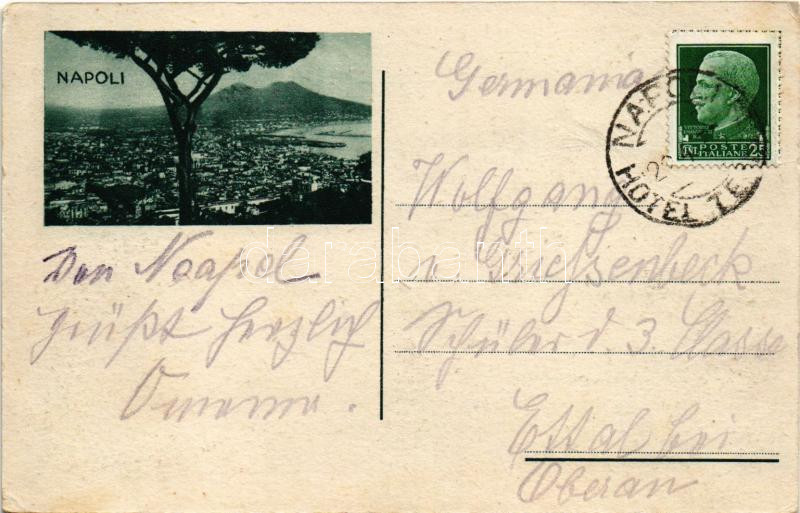 NAPOLI
Von Neapel
grüßt herzlich
Omama.
Germania
Wolfgang
v. Grießenbeck
Schüler d. 3. Classe
Ettal bei
Oberau
POSTE
ITALIANE
NAPOLI
HOTEL TE
darabanth